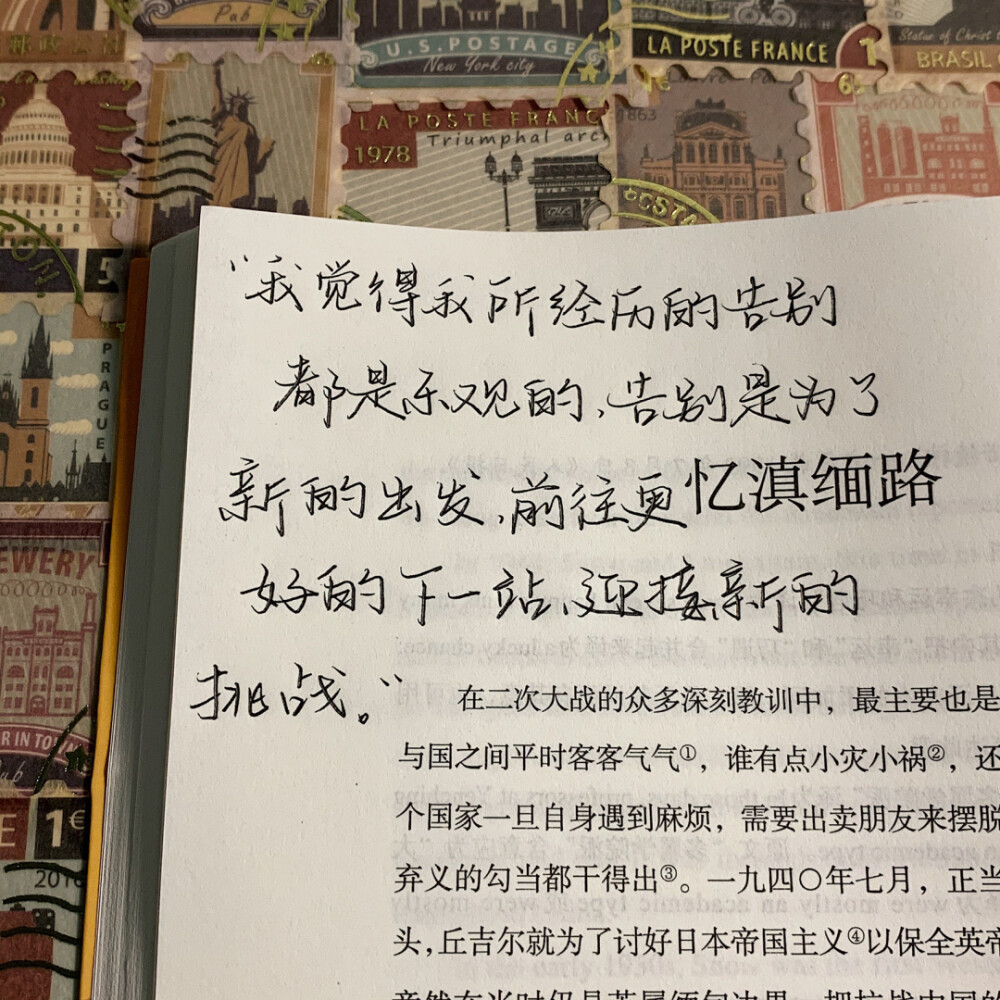 Pub
U.S. POSTAGE
New York city
LA POSTE FRANCE
1
Statue of Christ t
BRASIL
LA POSTE FRANC
Triumphal arch
1978
1863
POSTA
5
PRAGUE
EWERY
R IN TO
Pub
E 1€
2016
"我觉得我所经历的告别
都是乐观的、告别是为了
新的出发,前往更
好的下一站、迎接新的
挑战。"
忆滇缅路
在二次大战的众多深刻教训中，最主要也是
与国之间平时客客气气①，谁有点小灾小祸②，还
个国家一旦自身遇到麻烦，需要出卖朋友来摆脱
弃义的勾当都干得出③。一九四〇年七月，正当
头,丘吉尔就为了讨好日本帝国主义④以保全英帝
竟然在当时仍是英属缅甸边界，把抗战中国的